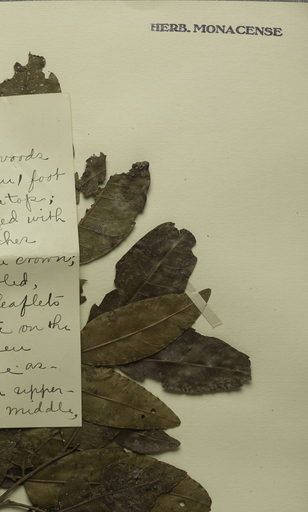 HERB. MONACENSE
woods
foot
tops;
ed with
ches
crown;
led,
leaflets
on the
as-
upper-
middle,